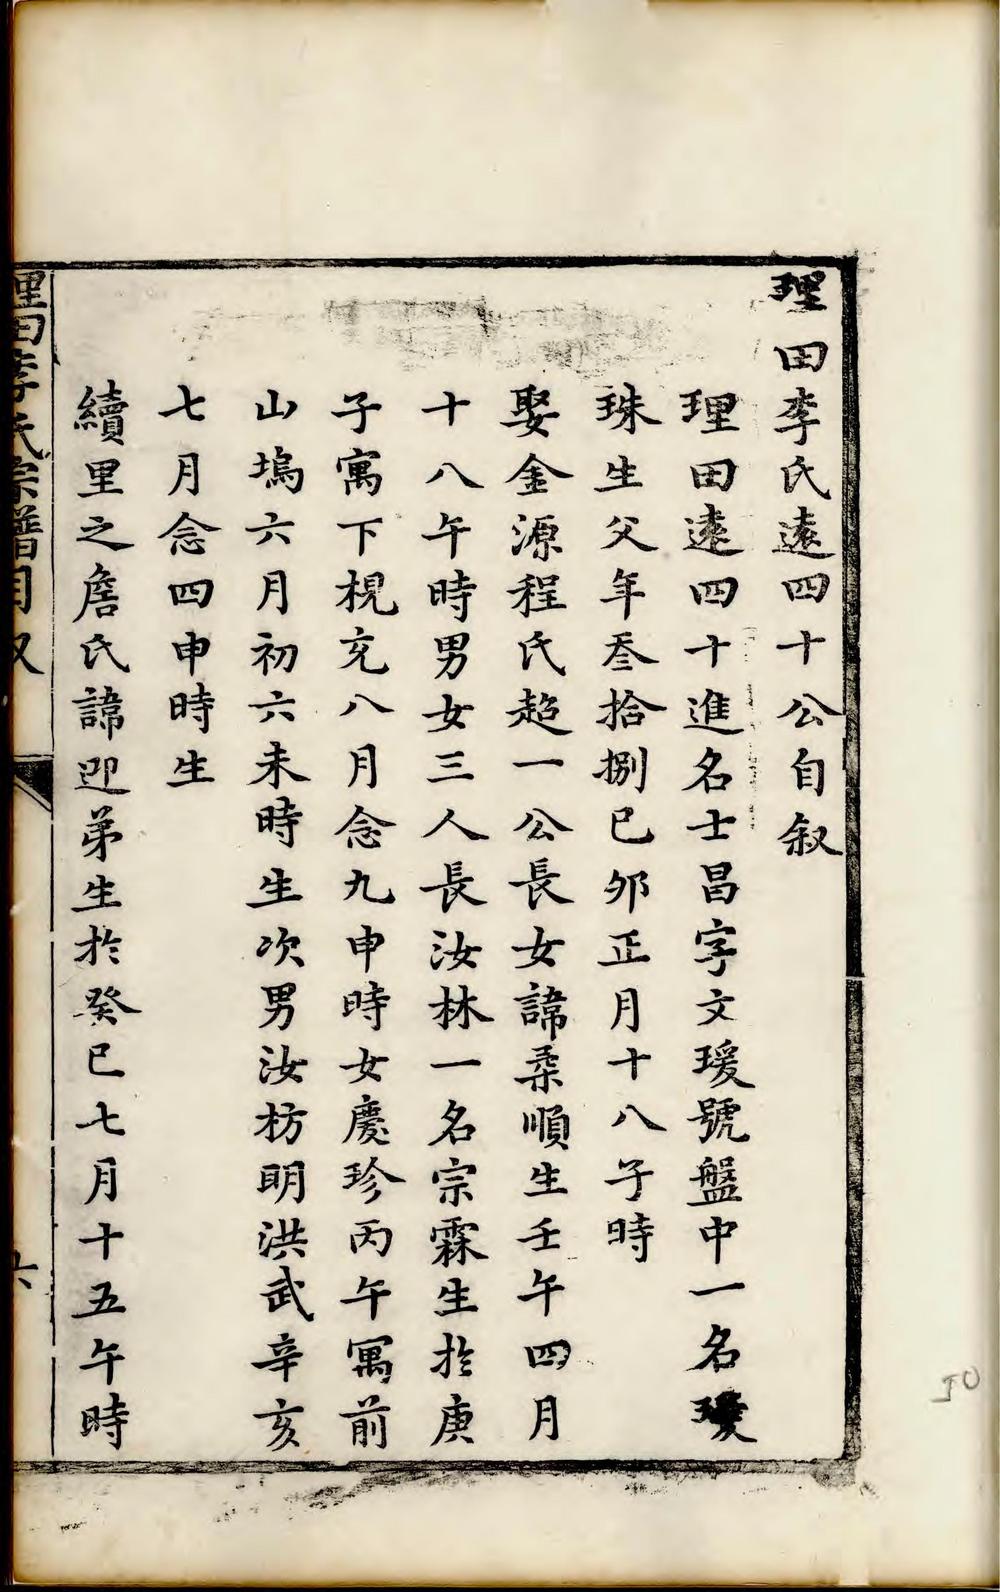 理田李氏遠四十公自叙
理田遠四十進名士昌字文瑗號盤中一名瓊
珠生父年叁拾捌己夘正月十八子時
娶金源程氏超一公長女諱柔順生壬午四月
十八午時男女三人長汝林一名宗霖生於庚
子寓下梘充八月念九申時女慶珍丙午寓前
山塢六月初六未時生次男汝枋明洪武辛亥
七月念四申時生
續里之詹氏諱迎弟生於癸巳七月十五午時
理田李氏宗譜目叙
六
50